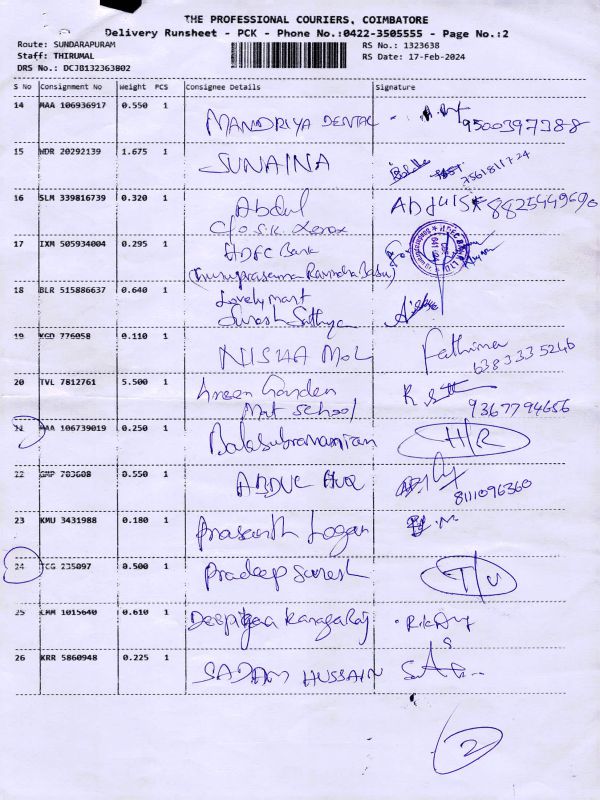 THE PROFESSIONAL COURIERS, COIMBATORE
Delivery Runsheet - PCK - Phone No.:0422-3505555 - Page No.:2
Route: SUNDARAPURAM
RS No.: 1323638
Staff: THIRUMAL
RS Date: 17-Feb-2024
DRS No.: DCJB132363802
S No Consignment No Weight PCS Consignee Details Signature
14 MAA 106936917 0.550 1 MANDRIYA DENTAL 9500397288
15 WDR 20292139 1.675 1 SUNAINA 7561811724
16 SLM 339816739 0.320 1 Abdul Abdul 8825449690
C/o S.K. Xerox
17 IXM 505934004 0.295 1 HDFC Bank
(Guruprasanna Ravindra Babu)
18 BLR 515886637 0.640 1 Lovely mart
Suresh Sathya
19 KGD 776058 0.110 1 NISHA MOL Fathima
6383335246
20 TVL 7812761 5.500 1 Green Garden
Mat School 9367794656
21 MAA 106739019 0.250 1 Balasubramanian H/R
22 GMP 703608 0.550 1 ABDUL HUQ
8111096360
23 KMU 3431988 0.180 1 Prasanth Logan
24 TCG 235097 0.500 1 Pradeep Suresh T/U
25 1015640 0.610 1 Deepika Kanagaraj
26 KRR 5860948 0.225 1 SADAM HUSSAIN
2